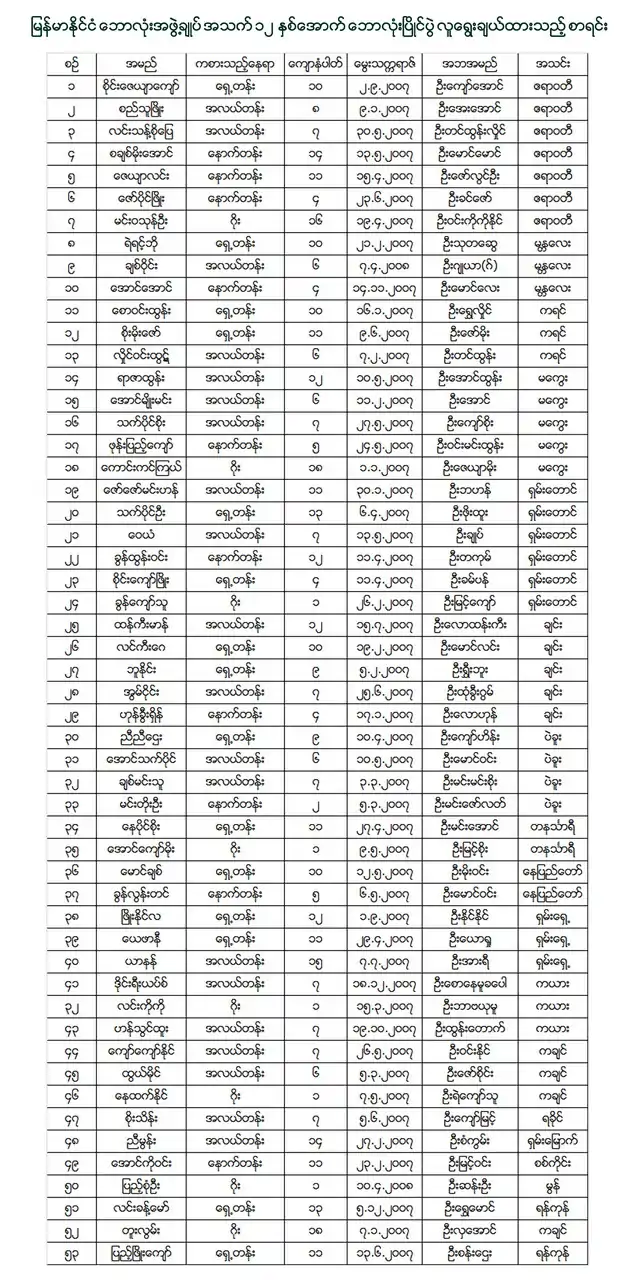 မြန်မာနိုင်ငံ ဘောလုံးအဖွဲ့ချုပ် အသက် ၁၂ နှစ်အောက် ဘောလုံးပြိုင်ပွဲ လူရွေးချယ်ထားသည့် စာရင်း
စဉ် အမည် ကစားသည့်နေရာ ကျောနံပါတ် မွေးသက္ကရာဇ် အဘအမည် အသင်း
၁ စိုင်းဇေယျာကျော် ရှေ့တန်း ၁၀ ၂.၉.၂၀၀၇ ဦးကျော်အောင် ဧရာဝတီ
၂ စည်သူဖြိုး အလယ်တန်း ၈ ၉.၁.၂၀၀၇ ဦးအေးအောင် ဧရာဝတီ
၃ လင်းသန့်စိုပြေ အလယ်တန်း ၇ ၃၀.၅.၂၀၀၇ ဦးတင်ထွန်းလှိုင် ဧရာဝတီ
၄ စချစ်မိုးအောင် နောက်တန်း ၁၄ ၁၃.၅.၂၀၀၇ ဦးမောင်မောင် ဧရာဝတီ
၅ ဇေယျာလင်း နောက်တန်း ၁၁ ၁၅.၄.၂၀၀၇ ဦးဇော်လွင်ဦး ဧရာဝတီ
၆ ဇော်ပိုင်ဖြိုး နောက်တန်း ၄ ၂၃.၆.၂၀၀၇ ဦးခင်ဇော် ဧရာဝတီ
၇ မင်းဝသုန်ဦး ဂိုး ၁၆ ၁၉.၄.၂၀၀၇ ဦးဝင်းကိုကိုနိုင် ဧရာဝတီ
၈ ရဲရင့်ဘို ရှေ့တန်း ၁၀ ၂၁.၂.၂၀၀၇ ဦးသုတဆွေ မန္တလေး
၉ ချစ်ဝိုင်း အလယ်တန်း ၆ ၇.၄.၂၀၀၈ ဦးဂျယာ(ဂ်) မန္တလေး
၁၀ အောင်အောင် နောက်တန်း ၄ ၁၄.၁၁.၂၀၀၇ ဦးမောင်လေး မန္တလေး
၁၁ စောဝင်းထွန်း ရှေ့တန်း ၁၀ ၁၆.၁.၂၀၀၇ ဦးရွှေလှိုင် ကရင်
၁၂ စိုးမိုးဇော် ရှေ့တန်း ၁၁ ၉.၆.၂၀၀၇ ဦးဇော်မိုး ကရင်
၁၃ လှိုင်ဝင်းထွဋ် အလယ်တန်း ၆ ၇.၂.၂၀၀၇ ဦးတင်ထွန်း ကရင်
၁၄ ရာဇာထွန်း အလယ်တန်း ၁၂ ၁၀.၅.၂၀၀၇ ဦးအောင်ထွန်း မကွေး
၁၅ အောင်မျိုးမင်း အလယ်တန်း ၆ ၁၁.၂.၂၀၀၇ ဦးအောင် မကွေး
၁၆ သက်ပိုင်စိုး အလယ်တန်း ၇ ၂၇.၅.၂၀၀၇ ဦးကျော်စိုး မကွေး
၁၇ ဖုန်းပြည့်ကျော် နောက်တန်း ၅ ၂၄.၅.၂၀၀၇ ဦးဝင်းမင်းထွန်း မကွေး
၁၈ ကောင်းကင်ကြယ် ဂိုး ၁၈ ၁.၁.၂၀၀၇ ဦးဇေယျာမိုး မကွေး
၁၉ ဇော်ဇော်မင်းဟန် အလယ်တန်း ၁၁ ၃၀.၁.၂၀၀၇ ဦးဘဟန် ရှမ်းတောင်
၂၀ သက်ပိုင်ဦး ရှေ့တန်း ၁၃ ၆.၄.၂၀၀၇ ဦးဖိုးထူး ရှမ်းတောင်
၂၁ ဝေယံ အလယ်တန်း ၇ ၁၃.၅.၂၀၀၇ ဦးချုပ် ရှမ်းတောင်
၂၂ ခွန်ထွန်းဝင်း နောက်တန်း ၁၂ ၁၁.၄.၂၀၀၇ ဦးတကုမ် ရှမ်းတောင်
၂၃ စိုင်းကျော်ဖြိုး ရှေ့တန်း ၄ ၁၁.၄.၂၀၀၇ ဦးခမ်ပန် ရှမ်းတောင်
၂၄ ခွန်ကျော်သူ ဂိုး ၁ ၂၆.၂.၂၀၀၇ ဦးမြင့်ကျော် ရှမ်းတောင်
၂၅ ထန်ကီးမာန် အလယ်တန်း ၁၂ ၁၅.၇.၂၀၀၇ ဦးလောထန်းကီး ချင်း
၂၆ လင်ကီးဂေ ရှေ့တန်း ၁၀ ၁၉.၂.၂၀၀၇ ဦးမောင်လင်း ချင်း
၂၇ ဘူနိုင်း ရှေ့တန်း ၉ ၅.၂.၂၀၀၇ ဦးရှီးဘူး ချင်း
၂၈ အွမ်ဝိုင်း အလယ်တန်း ၇ ၂၅.၆.၂၀၀၇ ဦးထုံခွီးဂွမ် ချင်း
၂၉ ဟုန်ခွီးရှိန် နောက်တန်း ၄ ၁၇.၁.၂၀၀၇ ဦးလောဟုန် ချင်း
၃၀ ညီညီဌေး ရှေ့တန်း ၉ ၁၀.၄.၂၀၀၇ ဦးကျော်ဟိန်း ပဲခူး
၃၁ အောင်သက်ပိုင် အလယ်တန်း ၆ ၁၀.၅.၂၀၀၇ ဦးမောင်ဝင်း ပဲခူး
၃၂ ချစ်မင်းသူ အလယ်တန်း ၇ ၃.၃.၂၀၀၇ ဦးမင်းမင်းစိုး ပဲခူး
၃၃ မင်းတိုးဦး နောက်တန်း ၂ ၅.၃.၂၀၀၇ ဦးမင်းဇော်လတ် ပဲခူး
၃၄ နေပိုင်စိုး ရှေ့တန်း ၁၁ ၂၇.၄.၂၀၀၇ ဦးမင်းအောင် တနင်္သာရီ
၃၅ အောင်ကျော်မိုး ဂိုး ၁ ၉.၅.၂၀၀၇ ဦးမြင့်စိုး တနင်္သာရီ
၃၆ မောင်ချစ် ရှေ့တန်း ၁၀ ၁၂.၅.၂၀၀၇ ဦးမိုးဝင်း နေပြည်တော်
၃၇ ခွန်လွန်းတင် နောက်တန်း ၅ ၆.၅.၂၀၀၇ ဦးမောင်ဝင်း နေပြည်တော်
၃၈ ဖြိုးနိုင်လ ရှေ့တန်း ၁၂ ၁.၉.၂၀၀၇ ဦးနိုင်နိုင် ရှမ်းရှေ့
၃၉ ယေဖာနီ ရှေ့တန်း ၁၁ ၂၉.၄.၂၀၀၇ ဦးယောရှု ရှမ်းရှေ့
၄၀ ယာနန် အလယ်တန်း ၁၅ ၇.၇.၂၀၀၇ ဦးအားရီ ရှမ်းရှေ့
၄၁ ဒိုင်းရီးယပ်စ် အလယ်တန်း ၇ ၁၈.၁၂.၂၀၀၇ ဦးစောနေမူခပေါ ကယား
၃၂ လင်းကိုကို ဂိုး ၁ ၁၅.၃.၂၀၀၇ ဦးဘာဗယုမူ ကယား
၄၃ ဟန်သွင်ထူး အလယ်တန်း ၇ ၁၉.၁၀.၂၀၀၇ ဦးထွန်းတောက် ကယား
၄၄ ကျော်ကျော်နိုင် အလယ်တန်း ၇ ၂၆.၅.၂၀၀၇ ဦးဝင်းနိုင် ကချင်
၄၅ ထွယ်မိုင် အလယ်တန်း ၆ ၅.၃.၂၀၀၇ ဦးဇော်စိုင်း ကချင်
၄၆ နေထက်နိုင် ဂိုး ၁ ၇.၅.၂၀၀၇ ဦးရဲကျော်သူ ကချင်
၄၇ စိုးသိန်း အလယ်တန်း ၇ ၅.၆.၂၀၀၇ ဦးကျော်မြင့် ရခိုင်
၄၈ ညီမွန်း အလယ်တန်း ၁၄ ၂၇.၂.၂၀၀၇ ဦးစံကွမ်း ရှမ်းမြောက်
၄၉ အောင်ကိုဝင်း နောက်တန်း ၁၁ ၂၃.၂.၂၀၀၇ ဦးမြင့်ဝင်း စစ်ကိုင်း
၅၀ ပြည့်စုံဦး ဂိုး ၁ ၁၀.၄.၂၀၀၈ ဦးဆန်းဦး မွန်
၅၁ လင်းခန့်မော် ရှေ့တန်း ၁၃ ၅.၁၂.၂၀၀၇ ဦးရွှေမောင် ရန်ကုန်
၅၂ တူးလွမ်း ဂိုး ၁၈ ၇.၁.၂၀၀၇ ဦးလှအောင် ကချင်
၅၃ ပြည့်ဖြိုးကျော် ရှေ့တန်း ၁၁ ၁၃.၆.၂၀၀၇ ဦးစန်းဌေး ရန်ကုန်